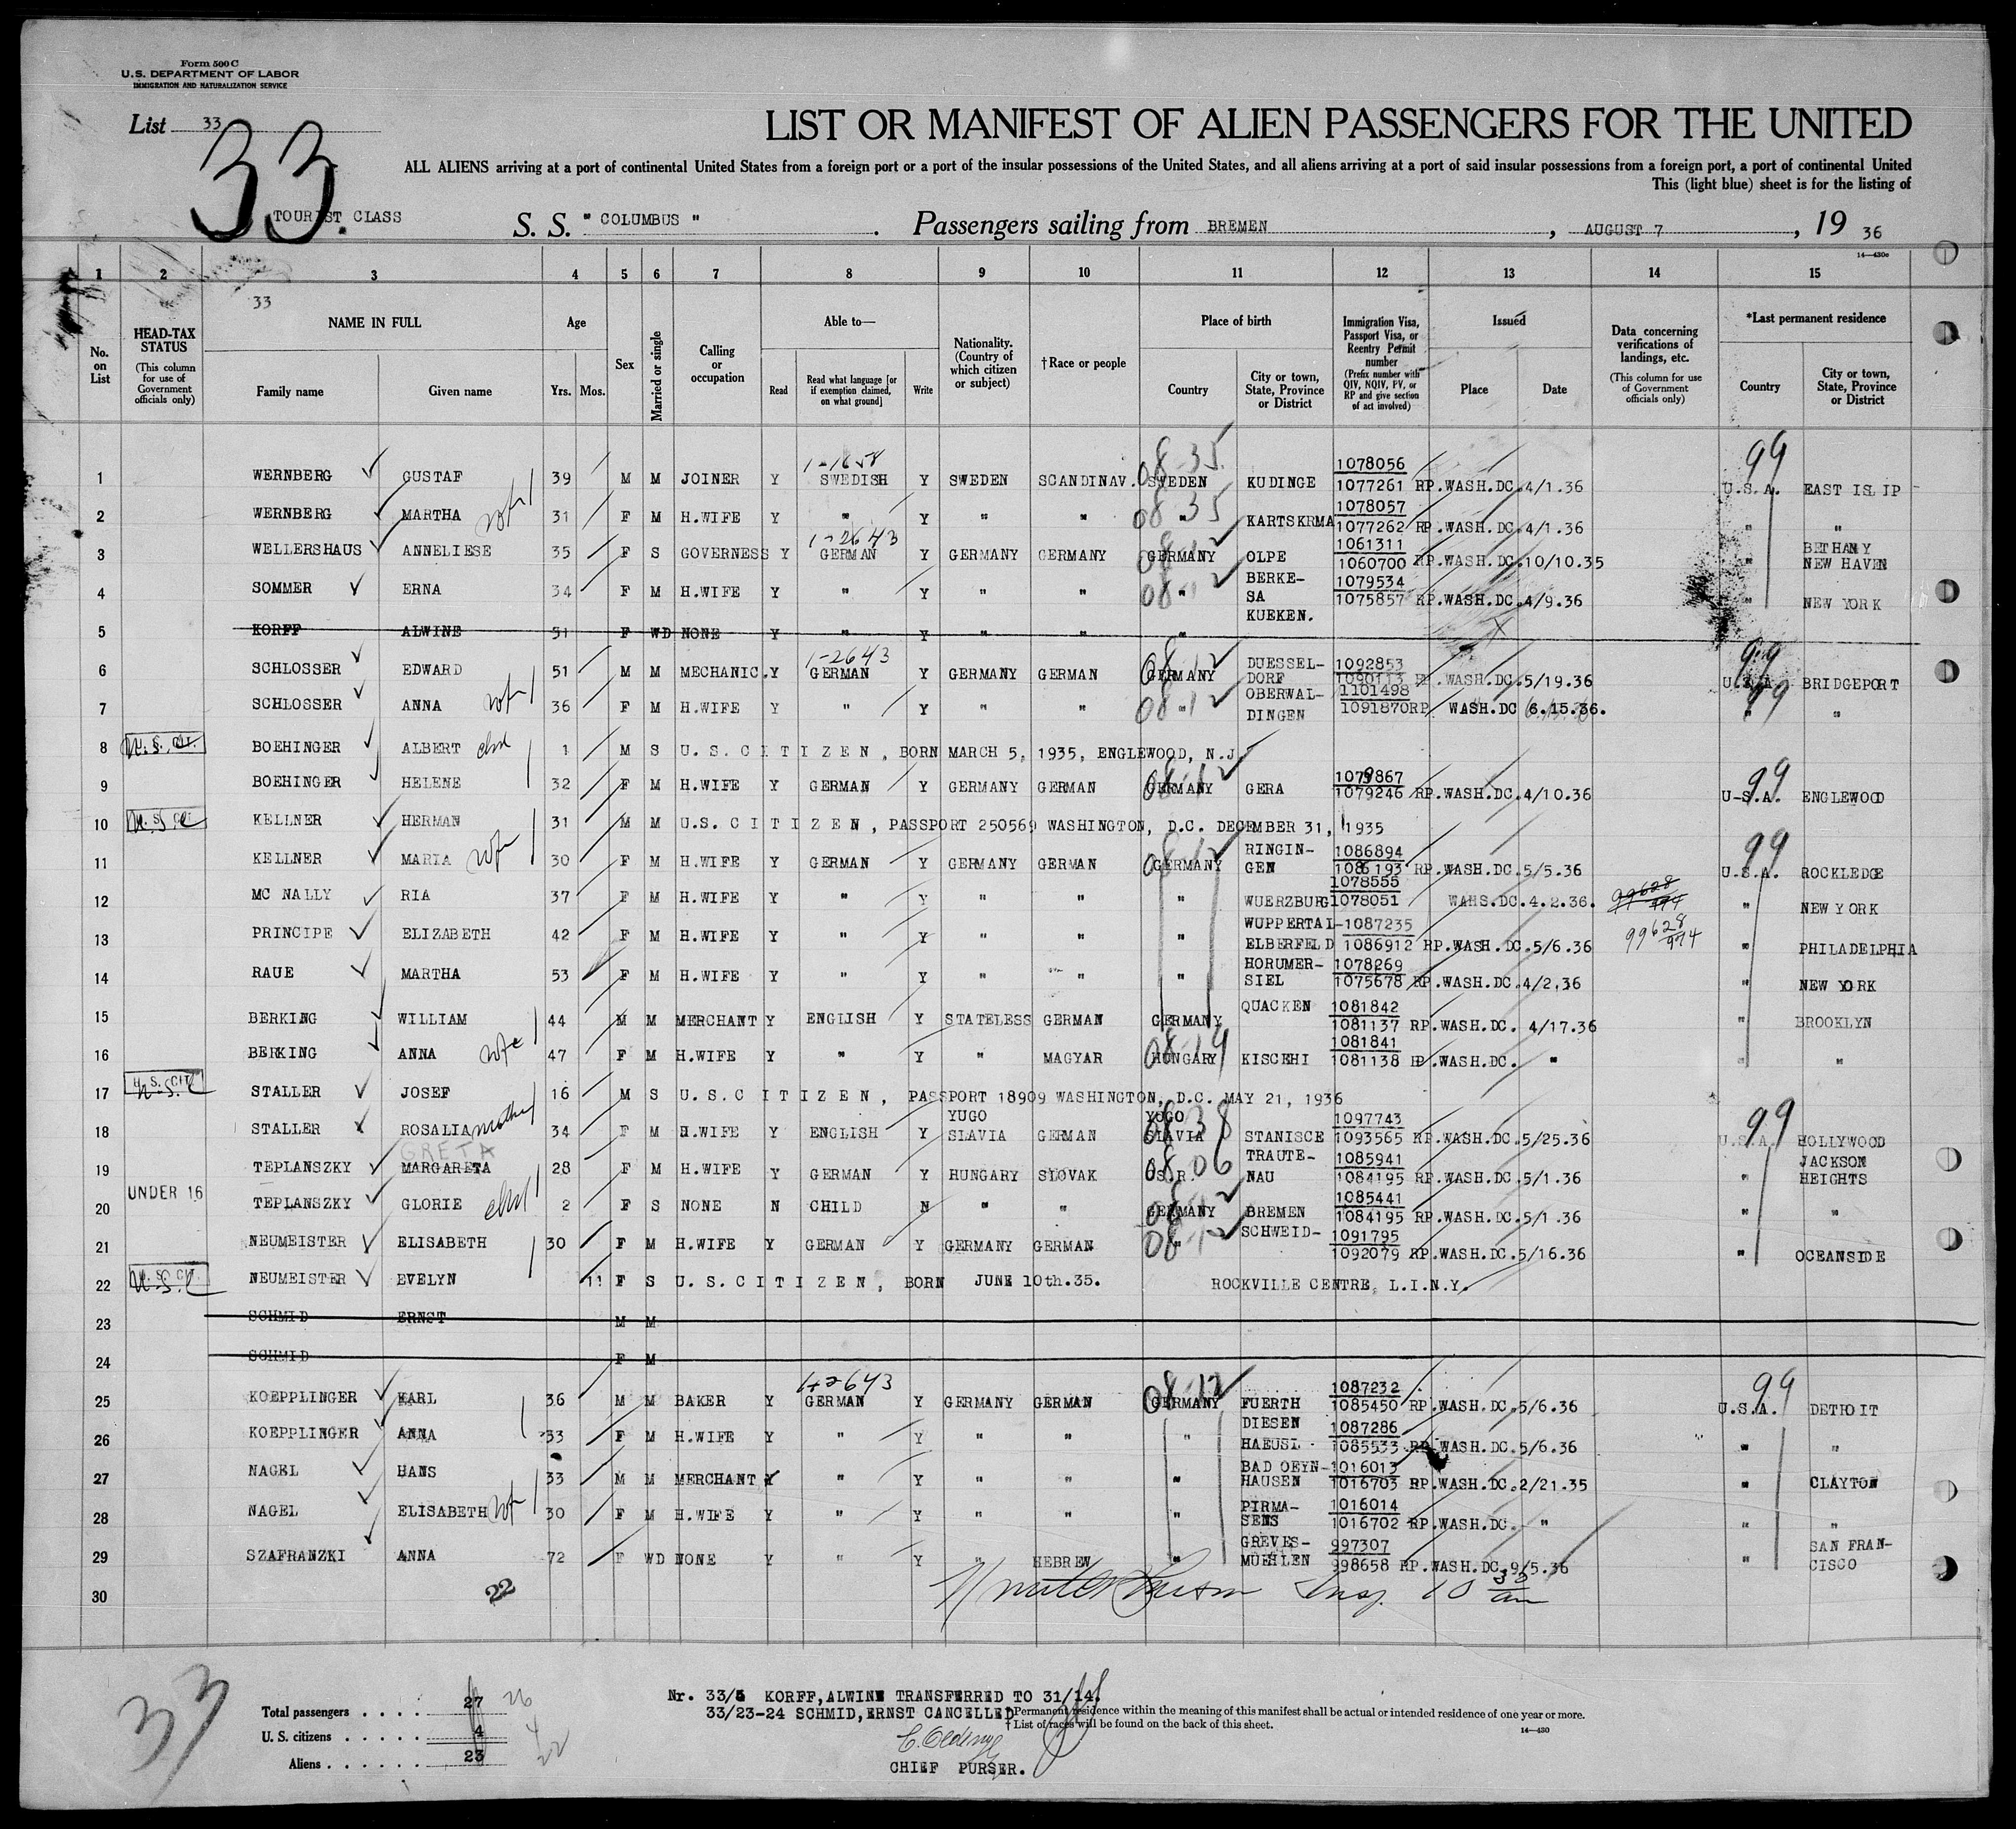 Form 500 C
U.S. DEPARTMENT OF LABOR
IMMIGRATION AND NATURALIZATION SERVICE
List 33
33.
LIST OR MANIFEST OF ALIEN PASSENGERS FOR THE UNITED
ALL ALIENS arriving at a port of continental United States from a foreign port or a port of the insular possessions of the United States, and all aliens arriving at a port of said insular possessions from a foreign port, a port of continental United
This (light blue) sheet is for the listing of
TOURIST CLASS S. S. " COLUMBUS " . Passengers sailing from BREMEN , AUGUST 7 , 19 36
14—430c
1 2 3 4 5 6 7 8 9 10 11 12 13 14 15
33
No. on List
HEAD-TAX STATUS (This column for use of Government officials only)
NAME IN FULL Family name Given name
Age Yrs. Mos.
Sex
Married or single
Calling or occupation
Able to— Read Read what language [or if exemption claimed, on what ground] Write
Nationality. (Country of which citizen or subject)
†Race or people
Place of birth Country City or town, State, Province or District
Immigration Visa, Passport Visa, or Reentry Permit number (Prefix number with QIV, NQIV, PV, or RP and give section of act involved)
Issued Place Date
Data concerning verifications of landings, etc. (This column for use of Government officials only)
*Last permanent residence Country City or town, State, Province or District
1-1658 08-35 1078056 99
1 WERNBERG GUSTAF 39 M M JOINER Y SWEDISH Y SWEDEN SCANDINAV. SWEDEN KUDINGE 1077261 RP.WASH.DC.4/1.36 U.S.A. EAST ISLIP
08 35 1078057
2 WERNBERG MARTHA wife 31 F M H.WIFE Y " Y " " " KARTSKRMA 1077262 RP.WASH.DC.4/1.36 " "
1-2643 08-12 1061311 BETHANY
3 WELLERSHAUS ANNELIESE 35 F S GOVERNESS Y GERMAN Y GERMANY GERMANY GERMANY OLPE 1060700 RP.WASH.DC.10/10.35 " NEW HAVEN
08-12 BERKE- 1079534
4 SOMMER ERNA 34 F M H.WIFE Y " Y " " " SA 1075857 RP.WASH.DC.4/9.36 " NEW YORK
KUEKEN.
5 KORFF ALWINE 51 F WD NONE Y " Y " " "
1-2643 08-12 DUESSEL- 1092853 99
6 SCHLOSSER EDWARD 51 M M MECHANIC. Y GERMAN Y GERMANY GERMAN GERMANY DORF 1090113 RP.WASH.DC.5/19.36 U.S.A. BRIDGEPORT
08-12 OBERWAL- 1101498 99
7 SCHLOSSER ANNA wife 36 F M H.WIFE Y " Y " " " DINGEN 1091870RP WASH.DC 6.15.36. " "
8 U. S. CIT. BOEHINGER ALBERT child 1 M S U. S. C I T I Z E N , BORN MARCH 5, 1935, ENGLEWOOD, N.J.
08-12 1079867 99
9 BOEHINGER HELENE 32 F M H.WIFE Y GERMAN Y GERMANY GERMAN GERMANY GERA 1079246 RP.WASH.DC.4/10.36 U.S.A. ENGLEWOOD
10 U. S. CIT. KELLNER HERMAN 31 M M U.S. C I T I Z E N , PASSPORT 250569 WASHINGTON, D.C. DECEMBER 31, 1935
08-12 RINGIN- 1086894 99
11 KELLNER MARIA wife 30 F M H.WIFE Y GERMAN Y GERMANY GERMAN GERMANY GEN 1086193 RP.WASH.DC.5/5.36 U.S.A. ROCKLEDGE
1078555
12 MC NALLY RIA 37 F M H.WIFE Y " Y " " " WUERZBURG 1078051 WAHS.DC.4.2.36. 99628/974 " NEW YORK
WUPPERTAL- 1087235 99628/974
13 PRINCIPE ELIZABETH 42 F M H.WIFE Y " Y " " " ELBERFELD 1086912 RP.WASH.DC.5/6.36 " PHILADELPHIA
HORUMER- 1078269
14 RAUE MARTHA 53 F M H.WIFE Y " Y " " " SIEL 1075678 RP.WASH.DC.4/2.36 " NEW YORK
QUACKEN 1081842
15 BERKING WILLIAM 44 M M MERCHANT Y ENGLISH Y STATELESS GERMAN GERMANY 1081137 RP.WASH.DC. 4/17.36 " BROOKLYN
08-19 1081841
16 BERKING ANNA wife 47 F M H.WIFE Y " Y " MAGYAR HUNGARY KISCEHI 1081138 RP.WASH.DC. " " "
17 U. S. CIT. STALLER JOSEF 16 M S U. S. C I T I Z E N , PASSPORT 18909 WASHINGTON, D.C. MAY 21, 1936
YUGO YUGO 08 38 1097743 99
18 STALLER ROSALIA mother 34 F M H.WIFE Y ENGLISH Y SLAVIA GERMAN SLAVIA STANISCE 1093565 RP.WASH.DC.5/25.36 U.S.A. HOLLYWOOD
GRETA 08-06 TRAUTE- 1085941 JACKSON
19 TEPLANSZKY MARGARETA 28 F M H.WIFE Y GERMAN Y HUNGARY SLOVAK CS.R. NAU 1084195 RP.WASH.DC.5/1.36 " HEIGHTS
UNDER 16 08-12 1085441
20 TEPLANSZKY GLORIE child 2 F S NONE N CHILD N " " GERMANY BREMEN 1084195 RP.WASH.DC.5/1.36 " "
08-12 SCHWEID- 1091795
21 NEUMEISTER ELISABETH 30 F M H.WIFE Y GERMAN Y GERMANY GERMAN " 1092079 RP.WASH.DC.5/16.36 " OCEANSIDE
22 U. S. CIT. NEUMEISTER EVELYN 11 F S U. S. C I T I Z E N , BORN JUNE 10th.35. ROCKVILLE CENTRE, L.I.N.Y.
23 SCHMID ERNST M M
24 SCHMID F M
1-2643 08-12 1087232 99
25 KOEPPLINGER KARL 36 M M BAKER Y GERMAN Y GERMANY GERMAN GERMANY FUERTH 1085450 RP.WASH.DC.5/6.36 U.S.A. DETROIT
DIESEN 1087286
26 KOEPPLINGER ANNA 33 F M H.WIFE Y " Y " " " HAEUSL. 1085533 RP.WASH.DC.5/6.36 " "
BAD OEYN- 1016013
27 NAGEL HANS 33 M M MERCHANT Y " Y " " " HAUSEN 1016703 RP.WASH.DC.2/21.35 " CLAYTON
PIRMA- 1016014
28 NAGEL ELISABETH wife 30 F M H.WIFE Y " Y " " " SENS 1016702 RP.WASH.DC. " " "
GREVES- 997307 SAN FRAN-
29 SZAFRANZKI ANNA 72 F WD NONE Y " Y " HEBREW " MUEHLEN 998658 RP.WASH.DC.9/5.36 " CISCO
30 22 Insp. 10 30 am
33
Total passengers . . . . 27 26
U. S. citizens . . . . . 4 4
Aliens . . . . . . 23 22
Nr. 33/5 KORFF,ALWINE TRANSFERRED TO 31/14.
33/23-24 SCHMID,ERNST CANCELLED
*Permanent residence within the meaning of this manifest shall be actual or intended residence of one year or more.
† List of races will be found on the back of this sheet.
14—430
CHIEF PURSER.